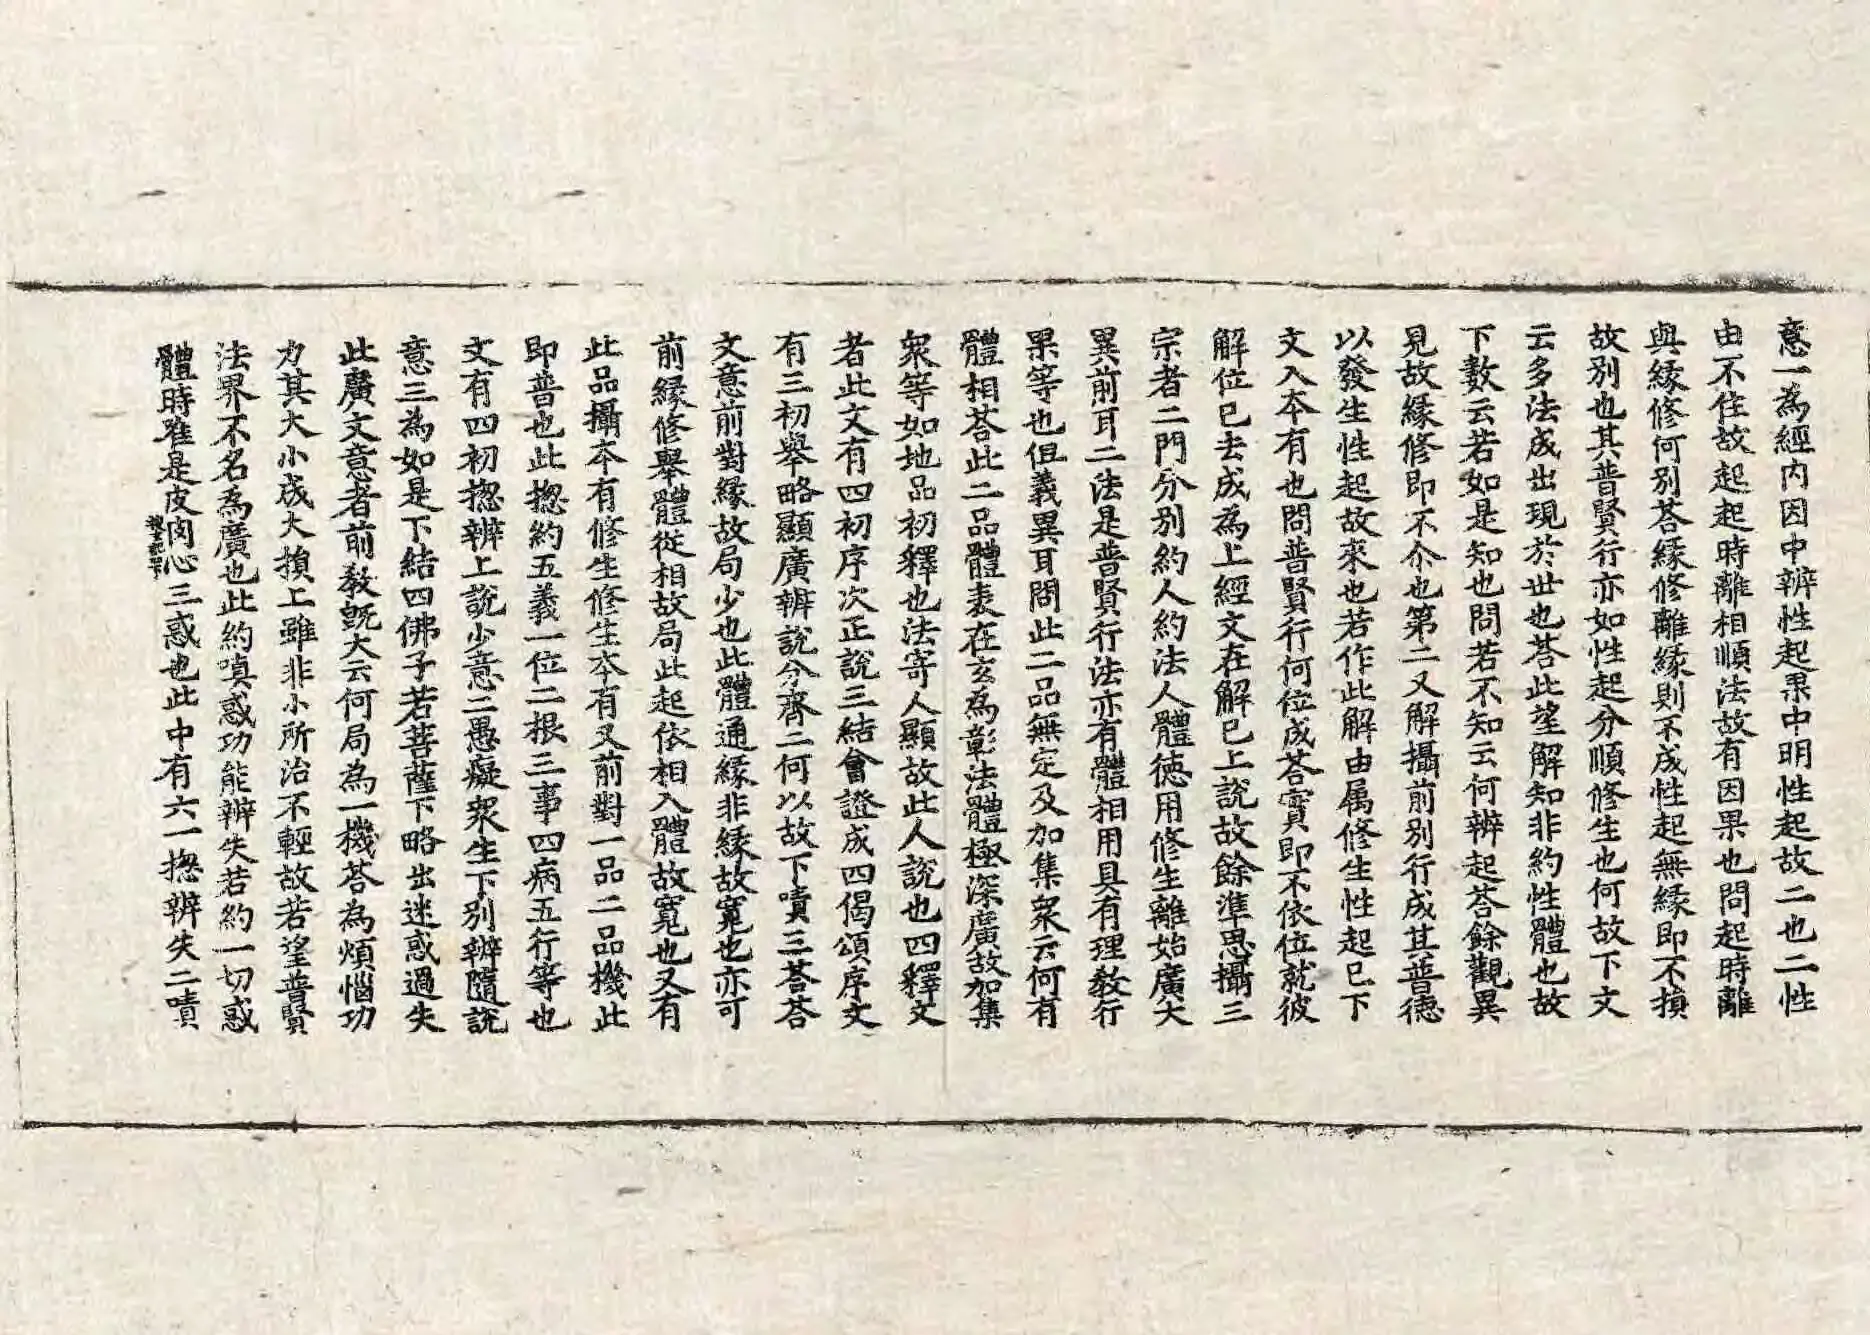 意一為經内因中辨性起果中明性起故二也二性
由不住故起起時離相順法故有因果也問起時離
與緣修何別荅緣修離緣則不成性起無緣即不損
故別也其普賢行亦如性起分順修生也何故下文
云多法成出現於世也荅此望解知非約性體也故
下數云若如是知也問若不知云何辨起荅餘觀異
見故緣修即不尒也第二又解攝前別行成其普德
以發生性起故來也若作此解由属修生性起已下
文入夲有也問普賢行何位成荅實即不依位就彼
解位已去成為上經文在解已上說故餘準思攝三
宗者二門分別約人約法人體德用修生離始廣大
異前耳二法是普賢行法亦有體相用具有理教行
果等也但義異耳問此二品無定及加集衆云何有
體相荅此二品體表在玄為彰法體極深廣故加集
衆等如地品初釋也法寄人顯故此人說也四釋文
者此文有四初序次正說三結會證成四偈頌序文
有三初舉略顯廣辨說分齊二何以故下嘖三荅荅
文意前對緣故局少也此體通緣非緣故寬也亦可
前緣修舉體從相故局此起依相入體故寬也又有
此品攝夲有修生修生夲有又前對一品二品機此
即普也此揔約五義一位二根三事四病五行等也
文有四初揔辨上說少意二愚癡衆生下別辨隨說
意三為如是下結四佛子若菩薩下略出迷惑過失
此廣文意者前教旣大云何局為一機荅為煩惱功
力其大小成大損上雖非小所治不輕故若望普賢
法界不名為廣也此約嗔惑功能辨失若約一切惑
體時唯是皮肉心三惑也此中有六一揔辨失二嘖